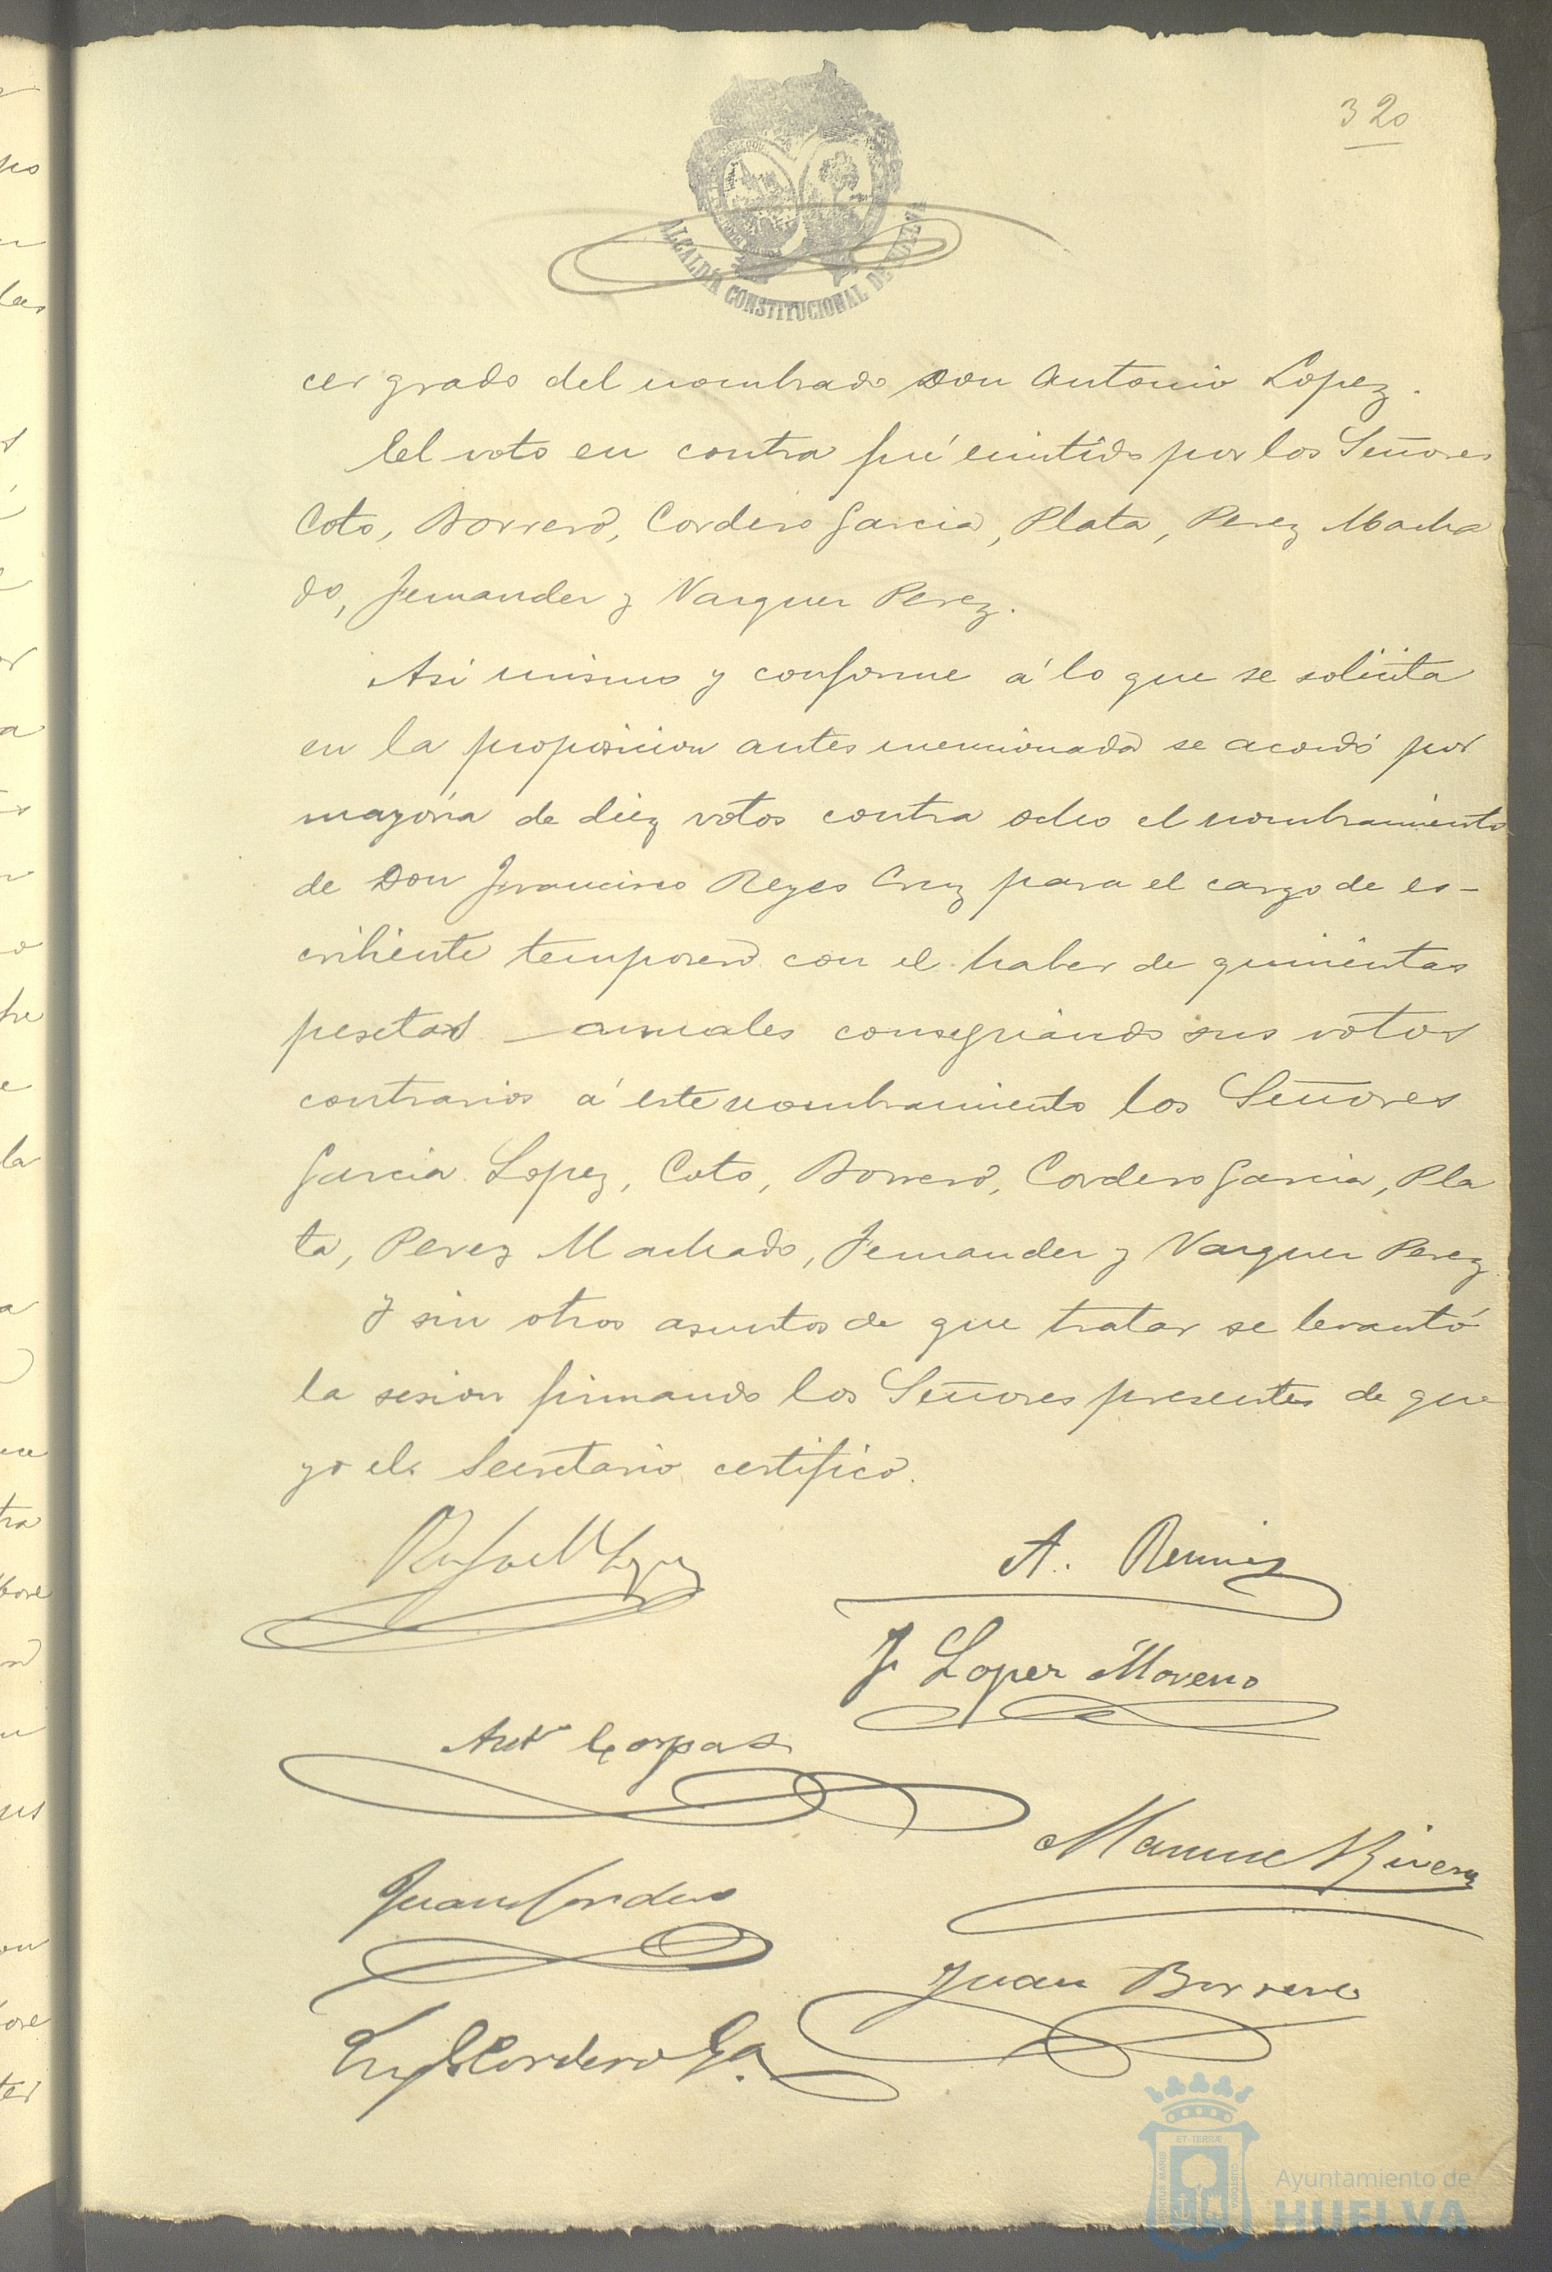 320
ALCALDÍA CONSTITUCIONAL DE HUELVA
cer grado del nombrado Don Antonio Lopez.
El voto en contra fué emitido por los Señores
Coto, Borrero, Cordero Garcia, Plata, Perez Macha
do, Fernandez y Vazquez Perez.
Asi mismo y conforme á lo que se solicita
en la proposicion antes mencionada se acordó por
mayoria de diez votos contra ocho el nombramiento
de Don Francisco Reyes Cruz para el cargo de es-
cribiente temporero con el haber de quinientas
pesetas anuales consignando sus votos
contrarios á este nombramiento los Señores
Garcia Lopez, Coto, Borrero, Cordero Garcia, Pla
ta, Perez Machado, Fernandez y Vazquez Perez.
Y sin otros asuntos de que tratar se levantó
la sesion firmando los Señores presentes de que
yo el Secretario certifico.
Rafael Lopez
A.
J Lopez Moreno
Antº Corpas
Manuel Rivera
Juan Cordero
Juan Borrero
Cordero Ga.
ET TERRÆ
PORTUS MARIS
CUSTODIA
Ayuntamiento de
HUELVA